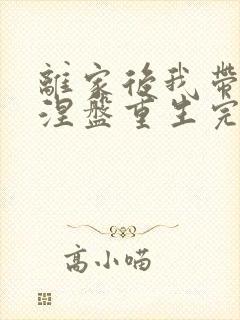 離家後我帶
涅盤重生完
高小喵